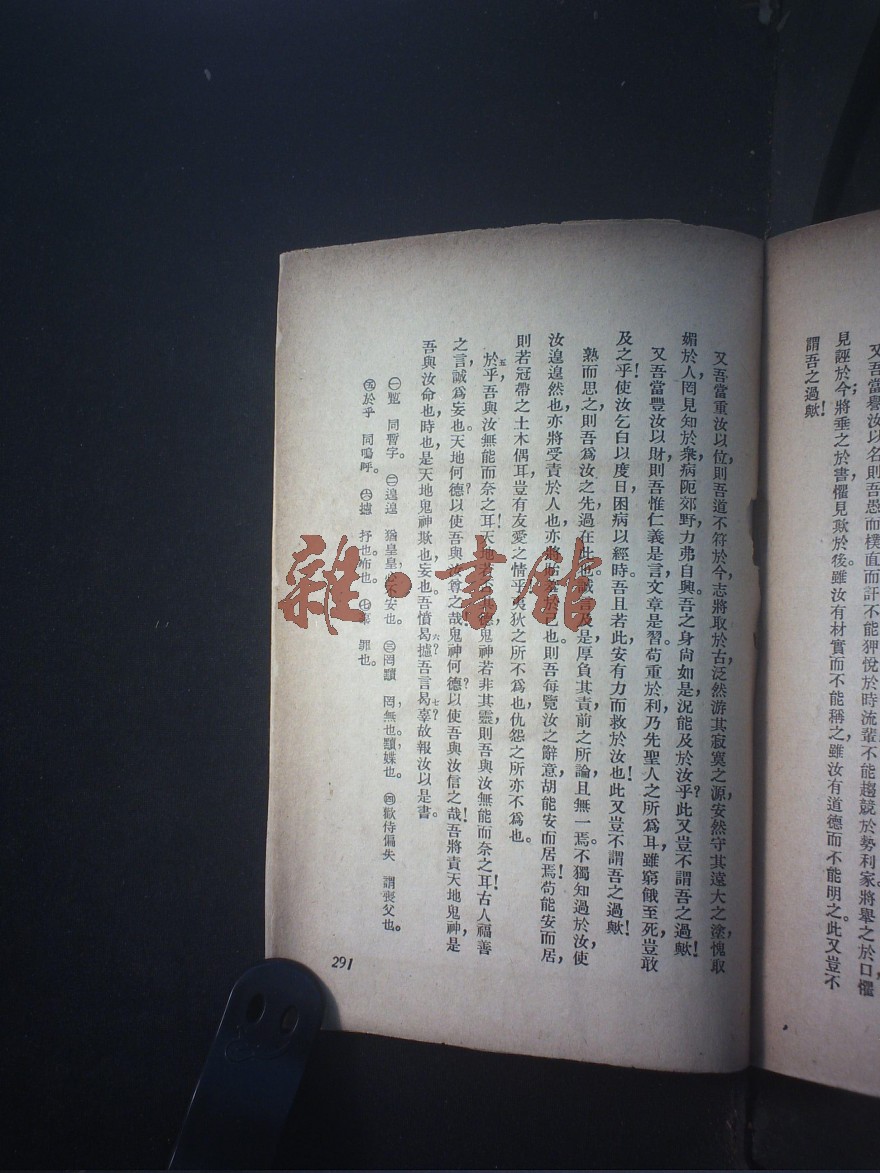 又吾當譽汝以名則吾愚而樸直而訐不能狎悅於時流輩不能趨競於勢利家將舉之於口懼
見誣於今將垂之於書懼見欺於後雖汝有材實而不能稱之雖汝有道德而不能明之此又豈不
謂吾之過歟！
又吾當重汝以位則吾道不符於今志將取於古泛然游其寂寞之源安然守其遠大之塗愧取
媚於人罔見知於衆病阨郊野力弗自興吾之身尙如是況能及於汝乎？此又豈不謂吾之過歟！
又吾當豐汝以財則吾惟仁義是言文章是習苟重於利乃先聖人之所爲耳雖窮餓至死豈敢
及之乎！使汝乞白以度日困病以經時吾且若此安有力而救於汝也！此又豈不謂吾之過歟！
熟而思之則吾爲汝之先過在此也誠吾及是厚負其責前之所論且無一焉。不獨知過於汝使
汝遑遑然也亦將受責於人也亦將於己也。則吾每覽汝之辭意胡能安而居焉！苟能安而居，
則若冠帶之土木偶耳豈有友愛之情乎夷狄之所不爲也仇怨之所亦不爲也。
於乎五吾與汝無能而奈之耳！天地若鬼神若非其靈則吾與汝無能而奈之耳！古人福善
之言誠爲妄也。天地何德以使吾與汝尊之哉？鬼神何德以使吾與汝信之哉！吾將責天地鬼神，是
吾與汝命也，時也，是天地鬼神欺也，妄也。吾憤曷攄六吾言？曷辜七？故報汝以是書。
㊀蹔　同暫字。　㊁遑遑　猶皇皇，安也。　㊂罔黷　罔，無也。黷，媟也。　㊃歡侍偏失　謂喪父也。
㊄於乎　同嗚呼。　㊅攄　抒也。布也。　㊆辜　罪也。
291
雜·書館